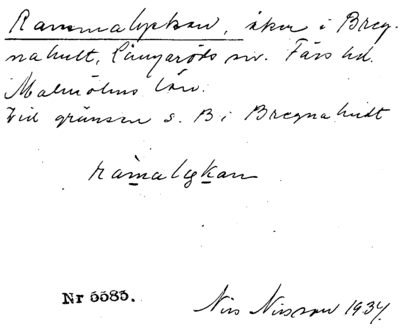 Rammalyckan, åker i Breg-
nahult, Långaröds sn. Färs hd.
Malmöhus län.
Vid gränsen s. B i Bregnahult
ramalykan
Nr 5585. Nils Nilsson 1934.